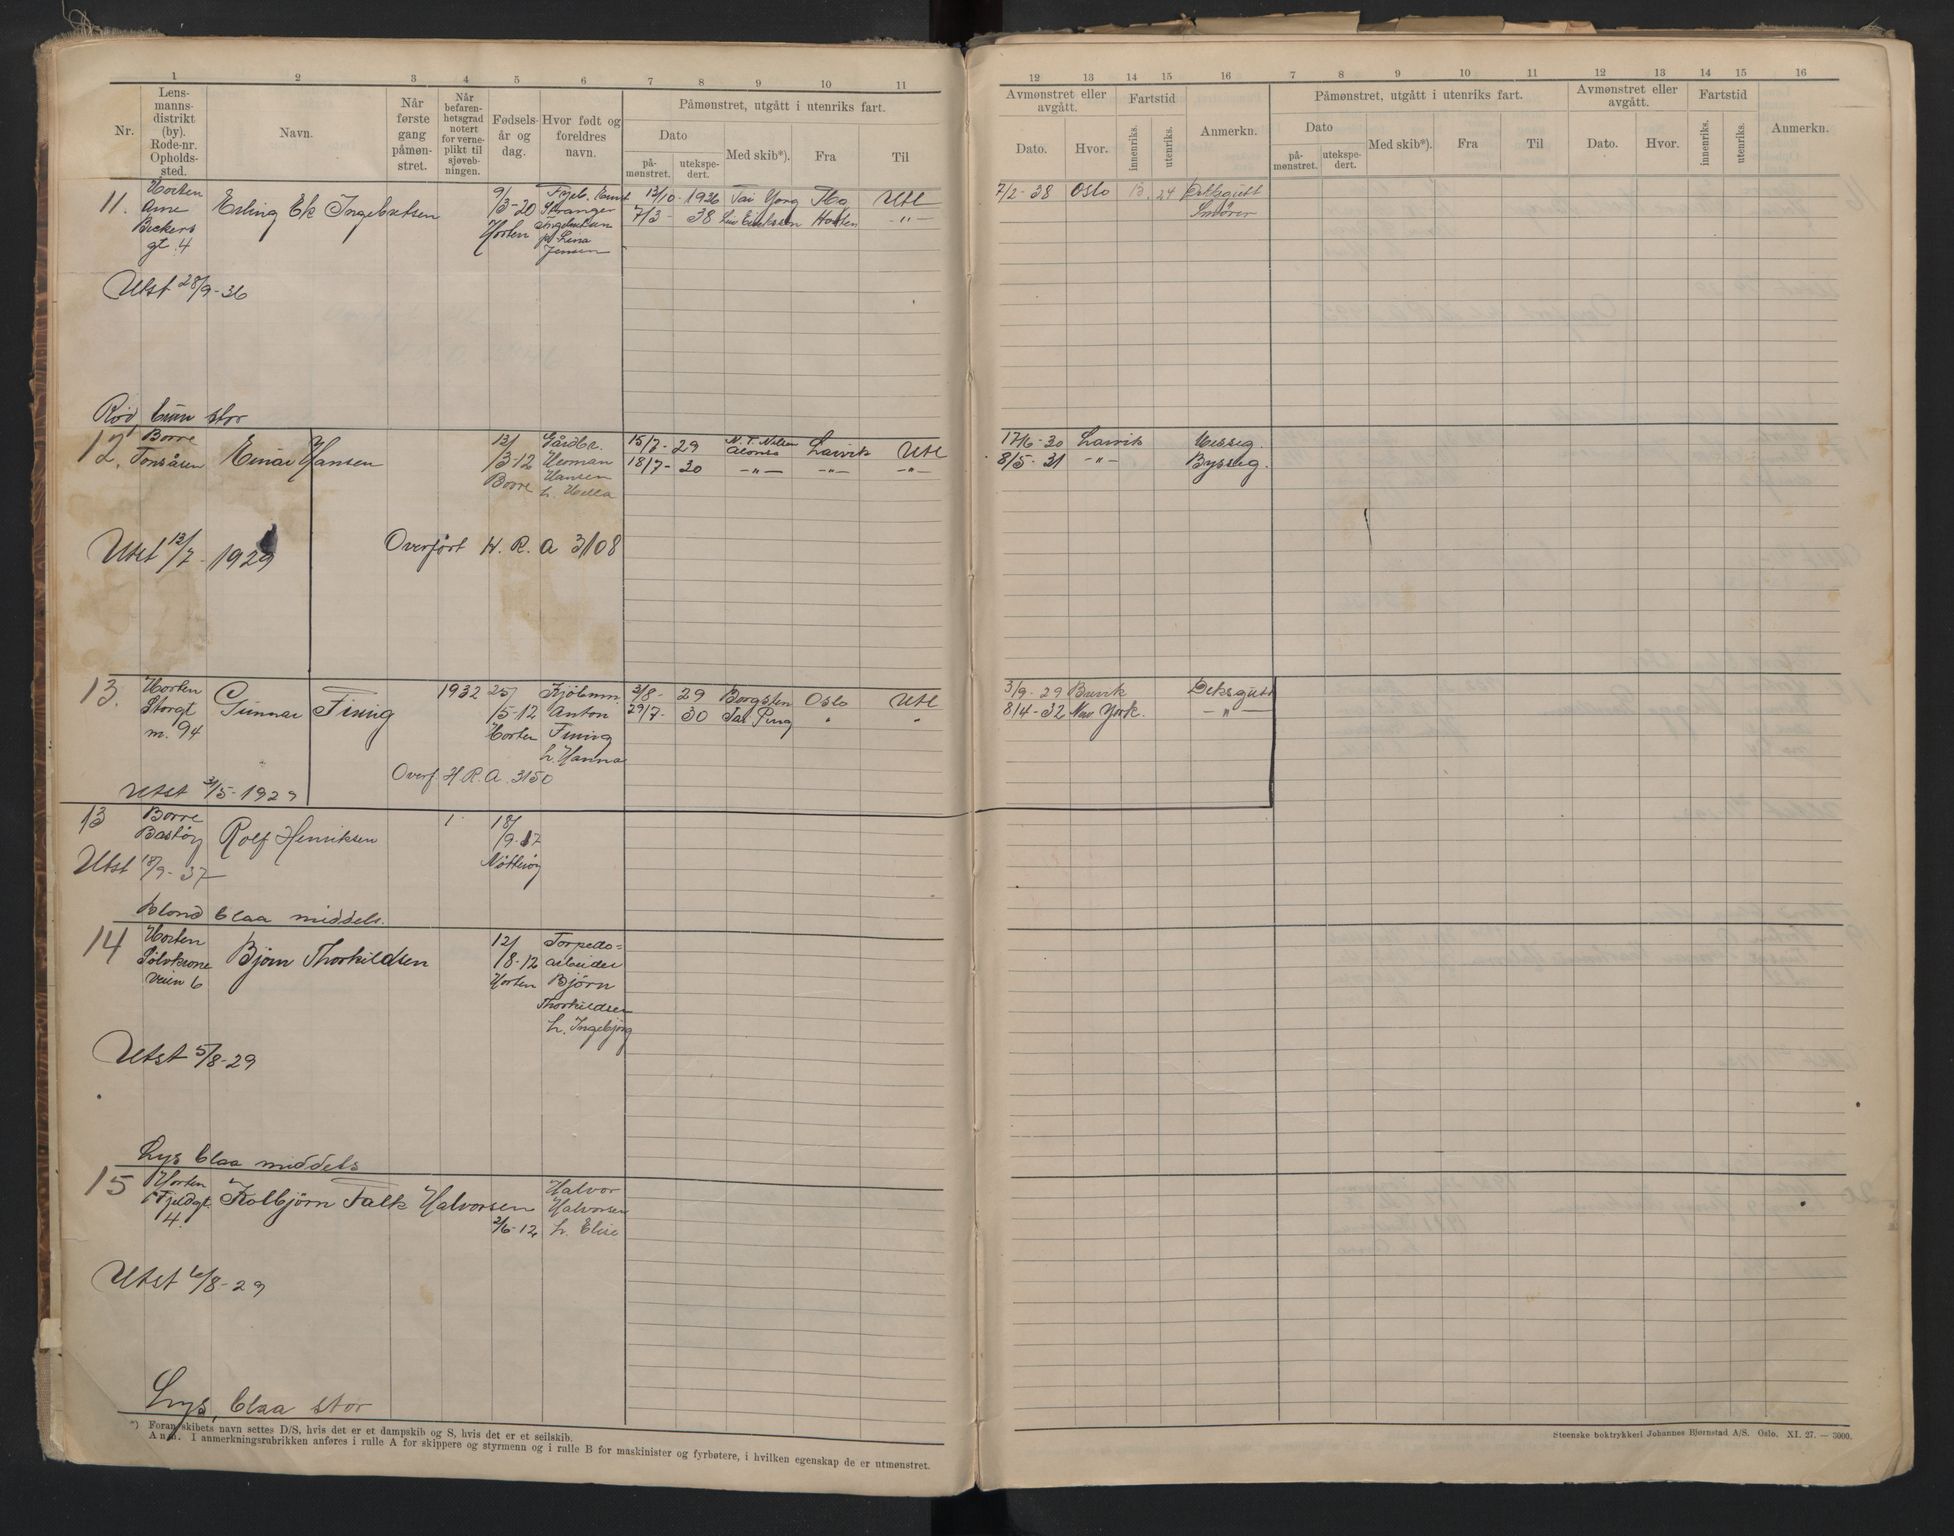 1 2 3 4 5 6 7 8 9 10 11
Nr.
Lens-
manns-
distrikt
(by).
Rode-nr.
Opholds-
sted.
Navn.
Når
første
gang
påmøn-
stret.
Når
befaren-
hetsgrad
notert
for verne-
plikt til
sjøveb-
ningen.
Fødsels-
år og
dag.
Hvor født og
foreldres
navn.
Påmønstret, utgått i utenriks fart.
Dato
på-
mønstret.
utekspe-
dert.
Med skib*).
Fra
Til
11.
Horten
Arne
Beckers
gt. 4
Erling Ek Ingebretsen
9/
3-20
Horten
Ingebretsen
Lina
Jensen
13/10 - 1936 Tai Yang Utl
7/3 - 38 Horten -"-
Utst 28/9-36
Rød, brun stor
12.
Borre
Tonsåsen
Einar Hansen
13/
3-12
Borre
Gårdbr.
Herman
Hansen
h. Hella
15/7 - 29 N. T. Nielsen Alonso Larvik Utl
18/7 - 30 -"- -"- -"-
Utst 12/7 - 1929
Overført H. R. A 3108
13.
Horten
Storgt
m. 94
Gunnar Fining
1932
25/
5-12
Horten
Kjöbmn.
Anton
Fining
h. Hanna
3/8 - 29 Borgsten Oslo Utl
29/7 - 30 Tai Ping " "
Overf. H. R. A. 3150
Utst 31/5-1929
13
Borre
Bastøy
Rolf Henriksen
1.
18/
9-17
Nøtterøy
Utst 18/9-37
Blond blaa middels.
14
Horten
Sølvkrone
veien 6
Bjørn Thorkildsen
12/
8-12
Horten
Torpedo-
arbeider
Bjørn
Thorkildsen
h. Ingebjørg
Utst 5/8-29
Lys blaa middels
15
Horten
Fjeldgt.
4.
Kolbjørn Falk Halvorsen
2/6-12
Halvor
Halvorsen
h. Elise
Utst 6/8-29
Lys, blaa stor
*) Foran skibets navn settes D/S, hvis det er et dampskib og S, hvis det er et seilskib.
Anm. I anmerkningsrubrikken anføres i rulle A for skippere og styrmenn og i rulle B for maskinister og fyrbøtere, i hvilken egenskap de er utmønstret.
12 13 14 15 16 7 8 9 10 11 12 13 14 15 16
Avmønstret eller
avgått.
Dato.
Hvor.
Fartstid
innenriks.
utenriks.
Anmerkn.
Påmønstret, utgått i utenriks fart.
Dato
på-
mønstret.
utekspe-
dert.
Med skib*).
Fra
Til
Avmønstret eller
avgått.
Dato.
Hvor.
Fartstid
innenriks.
utenriks.
Anmerkn.
7/2 - 38 Oslo B. 24 Dekksgutt
Smører
17/6 - 30 Larvik Messeg.
8/5 - 31 -"- Bysseg.
3/9 - 29 Brevik Deksgutt
8/4 - 32 New York. -"-
Steenske boktrykkeri Johannes Bjørnstad A/S. Oslo. XI. 27. — 3000.